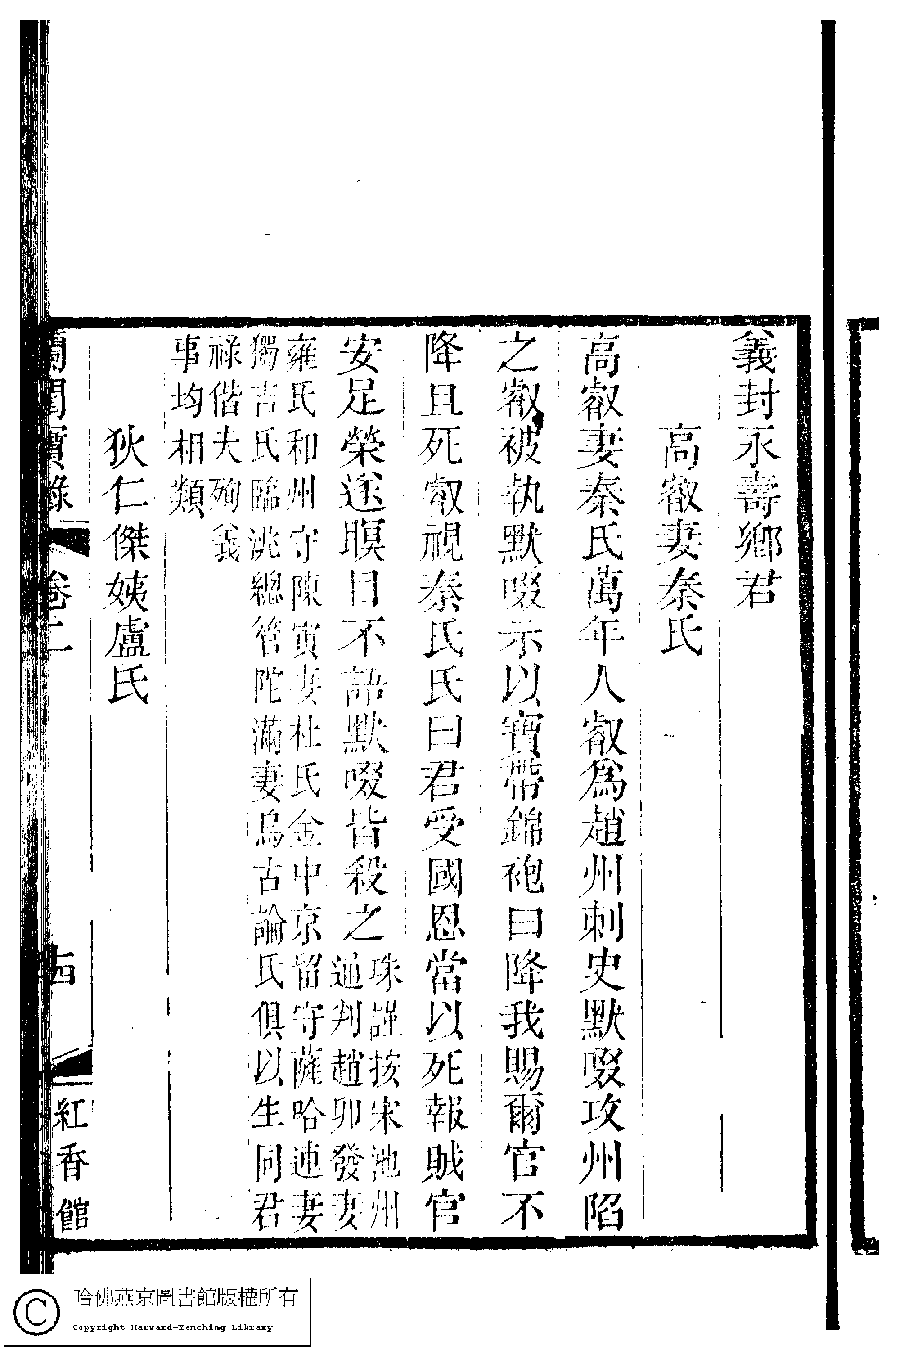 義封永壽鄉君
高叡妻秦氏
高叡妻秦氏萬年人叡爲趙州刺史默啜攻州陷
之叡被執默啜示以寶帶錦袍曰降我賜爾官不
降且死叡視秦氏氏曰君受國恩當以死報賊官
安足榮遂瞑目不語默啜皆殺之
珠謹按宋池州
通判趙卯發妻
雍氏和州守陳寅妻杜氏金中京留守薩哈連妻
獨吉氏臨洮總管陀滿妻烏古論氏俱以生同君
祿偕大殉義
事均相類
狄仁傑姨盧氏
蘭閨寶錄
卷二
十四
紅香館
哈佛燕京圖書館版權所有
Copyright Harvard-Yenching Library